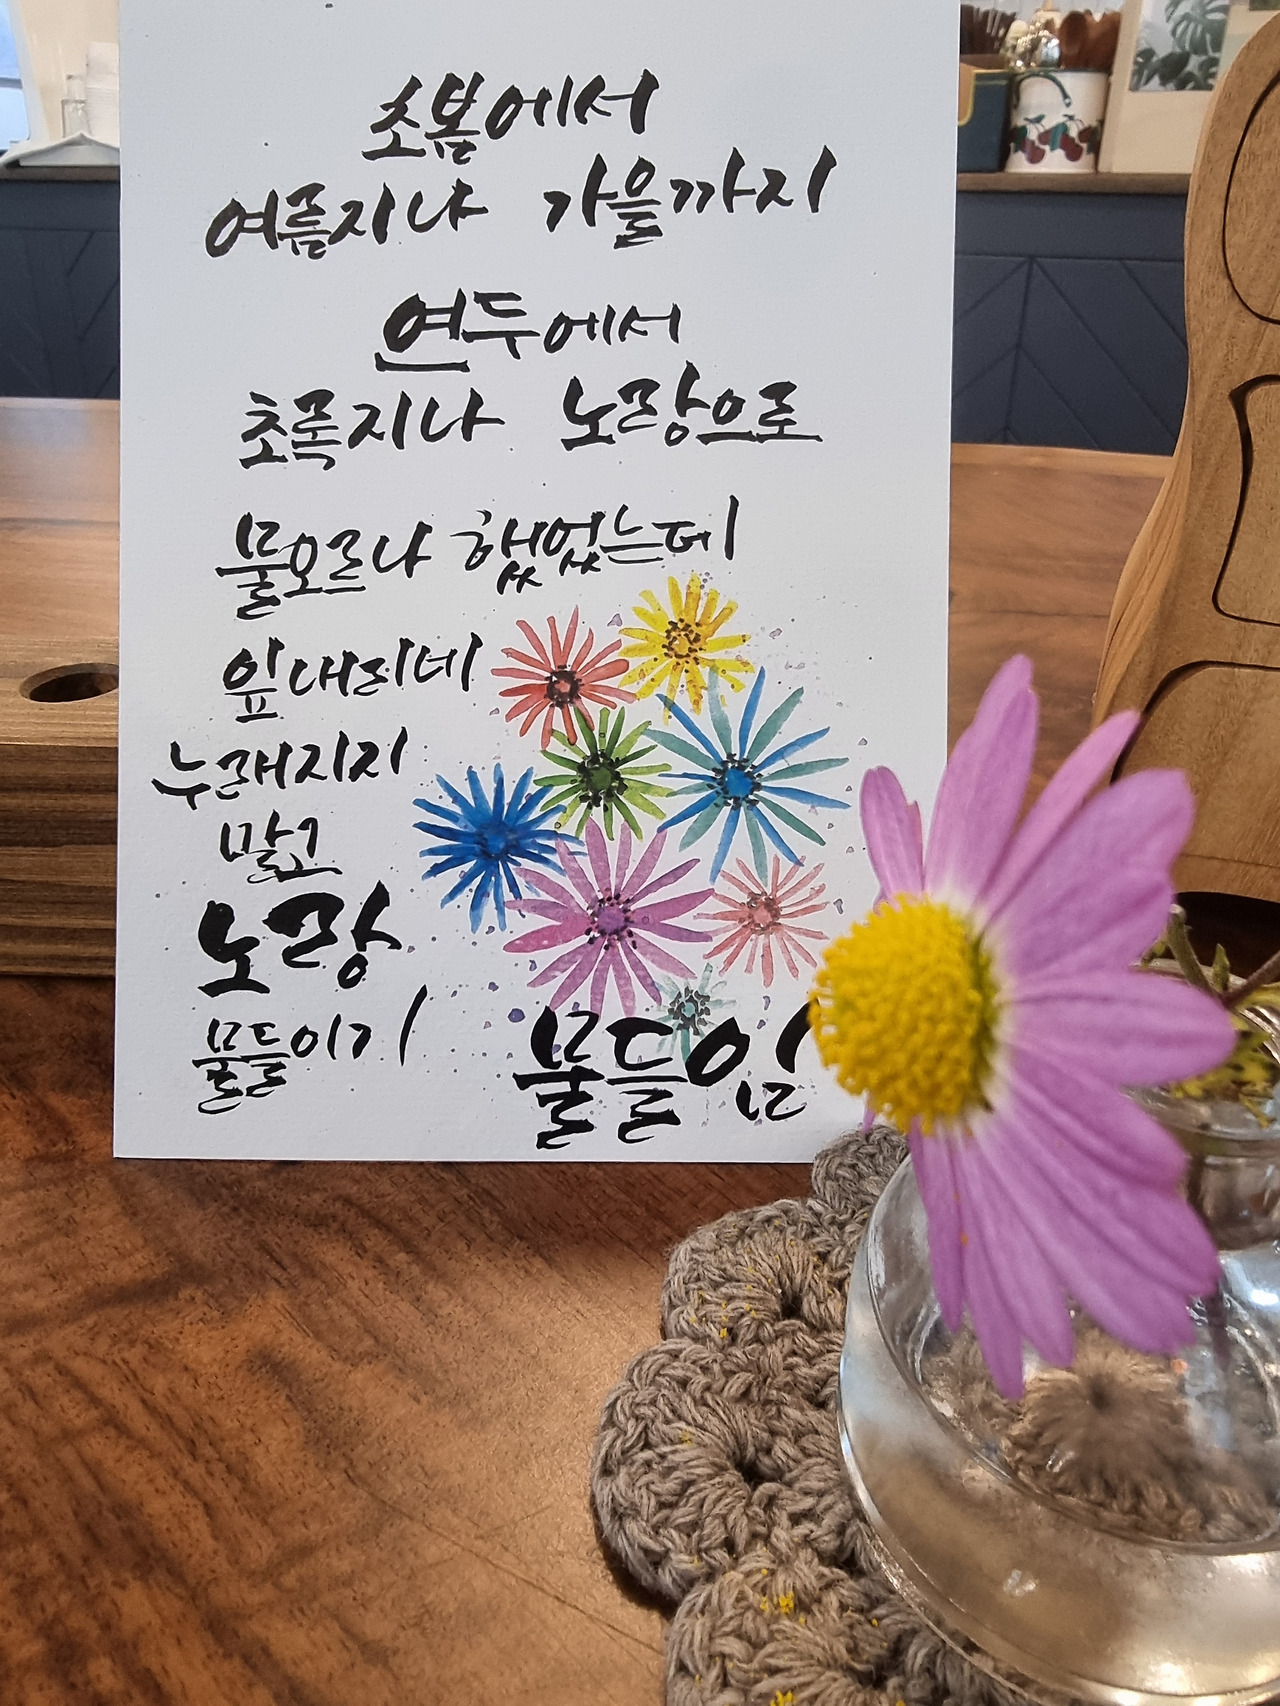 초봄에서
여름지나 가을까지
연두에서
초록지나 노랑으로
물오르나 했었는데
잎내리네
누래지지
말고
노랑
물들이기
물들임